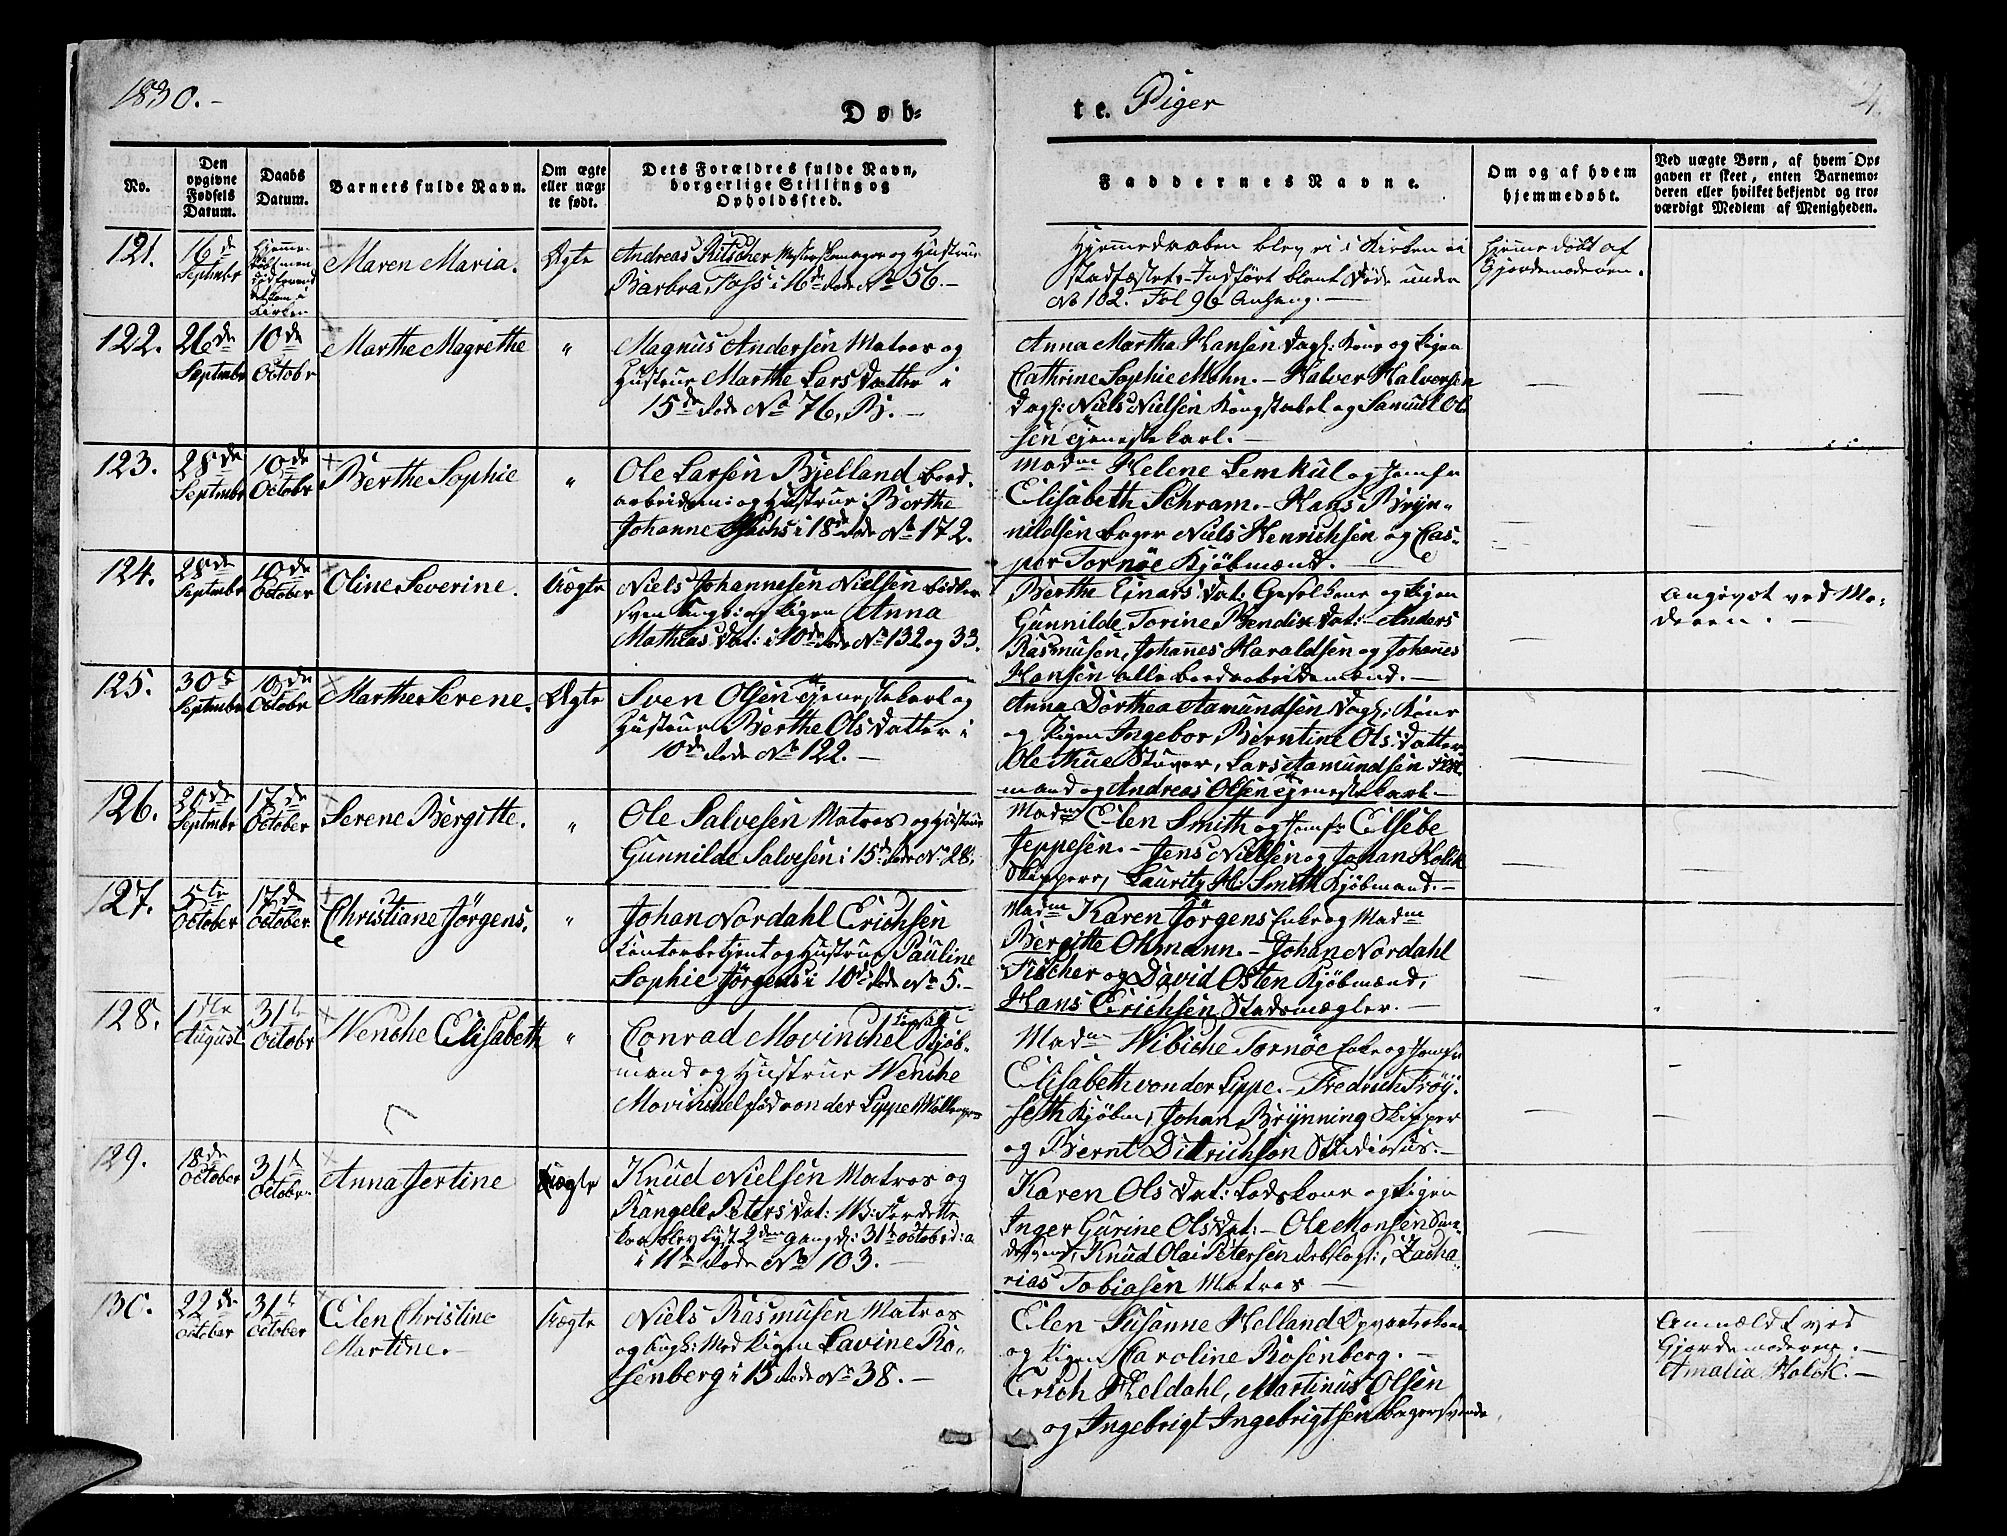 1830.-
Døb-
te. Piger
4
No.
Den opgivne Fødsels Datum.
Daabs Datum.
Barnets fulde Navn.
Om ægte eller uægte født.
Dets Forældres fulde Navn, borgerlige Stilling og Opholdssted.
Faddernes Navne.
Om og af hvem hjemmedøbt.
Ved uægte Børn, af hvem Opgaven er skeet, enten Barnemoderen eller hvilket bekjendt og troværdigt Medlem af Menigheden.
121.
16de Septembr
Maren Maria.
Ægte
Andreas Ritscher og Hustrue
Barbra Foss i 16de Rode No 56.-
Hjemmedaaben blev ei i Kirken ei
stadfæstet. Indført blant Døde under
No 102. Fol 96 Anhang.-
Hjemmedøbt af
Gjordemoderen.
122.
26de Septembr
10de Octobr
Marthe Magrethe
"
Magnus Andersen Matros og
Hustrue Marthe Lars Datter i
15de Rode No 76, B.-
Anna Martha Hansen Dagl: Kone og Pigen
Cathrine Sophie Mohn.- Halver Halversen
Dagl: Niels Nielsen Kongstabel og Samuel Ol-
sen Tjenestekarl.-
123.
28de Septembr
10de Octobr
Berthe Sophie
"
Ole Larsen Bjelland bord-
arbeidsm: og Hustrue Berthe
Johanne Sachs i 18de Rode No 172.
Madme Helene Lemkul og Jomfr
Elisabeth Schram.- Hans Bryn-
nildsen bager Niels Henrichsen og Cas-
per Tornöe Kjöbmænd.-
124.
28de Septembr
10de October
Oline Severine.
Uægte
Niels Johannesen Nielsen bødker
sven Ungk: og Pigen Anna
Mathias Dat: i 10de Rode No 132 og 33.
Berthe Einars Dat: Gesel Kone og Pigen
Gunnilde Torine Bendix Dat:- Anders
Rasmusen, Johannes Haraldsen og Johannes
Hansen alle bordarbeidsmænd.-
Angivet ved Mo-
deren.-
125.
30te Septembr
10de Octobr
Marthe Serene.
Ægte
Sven Olsen Tjenestekarl og
Hustrue Berthe Ols Datter i
10de Rode No 122.-
Anna Dorthea Aamundsen Dagl: Kone
og Pigen Ingebor, Berntine Ols: Datter
Ole Thue Stuver, Lars Aamundsen
mand og Andreas Olsen Tjenestekarl-
126.
21de Septmbr
17de October
Serene Bergitte.
"
Ole Salvesen Matros og Hustrue
Gunnilde Salvesen i 15de Rode No 28.
Madme Elen Smith og Jomfr Elsebe
Jeppesen.- Jens Nielsen og Johan Holck
Skippere, Lauritz H: Smith Kjöbmand.-
127.
5te October
17de October
Christiane Jörgens.
"
Johan Nordahl Erichsen
Contorbetjent og Hustrue Pauline
Sophie Jörgens i 10de Rode No 5.-
Madme Karen Jörgens Enke og Madme
Bergitte Ohmann.- Johan Nordahl
Fischer og David Osten Kjöbmænd,
Hans Erichsen Stadsmægler.-
128.
1ste August
31te Octobr
Wenche Elisabeth
"
Conrad Mowinchel Kjöb-
mand og Hustrue Wenche
Mowinchel född von der Lippe
Madme Wibiche Tornöe Enke og Jomfr
Elisabeth von der Lippe.- Fredrich Fröy-
seth Kjöbm, Johan Brynning Skipper
og Bernt Ditrichsön Studiosus.-
129.
18de October
31te Octobr.
Anna Jertine
Uægte
Knud Nielsen Matros og
Rangele Peters Dat: NB: Fordette
Par blev lyst 2den gang d: 31te Octobr d: a
i 11te Rode No 103.-
Karen Ols Dat: Lodskone og Pigen
Inger Gurine Ols Dat:- Ole Monsen
Knud Olai Petersen Zacha-
rias Tobiasen Matros-
130.
22de October
31te October
Elen Christine
Martine.-
Uægte
Niels Rasmusen Matros
og Ungk: Med Pigen Lavine Ro-
senberg i 15 Rode No 38.-
Elen Susanne Helland Opvarterkone
og Pigen Caroline Rosenberg.-
Erich Heldahl, Martinus Olsen
og Ingebrigt Ingebrigtsen bagersvende
Anmældt ved
Gjordemoderen.-
Amalia Holck.-